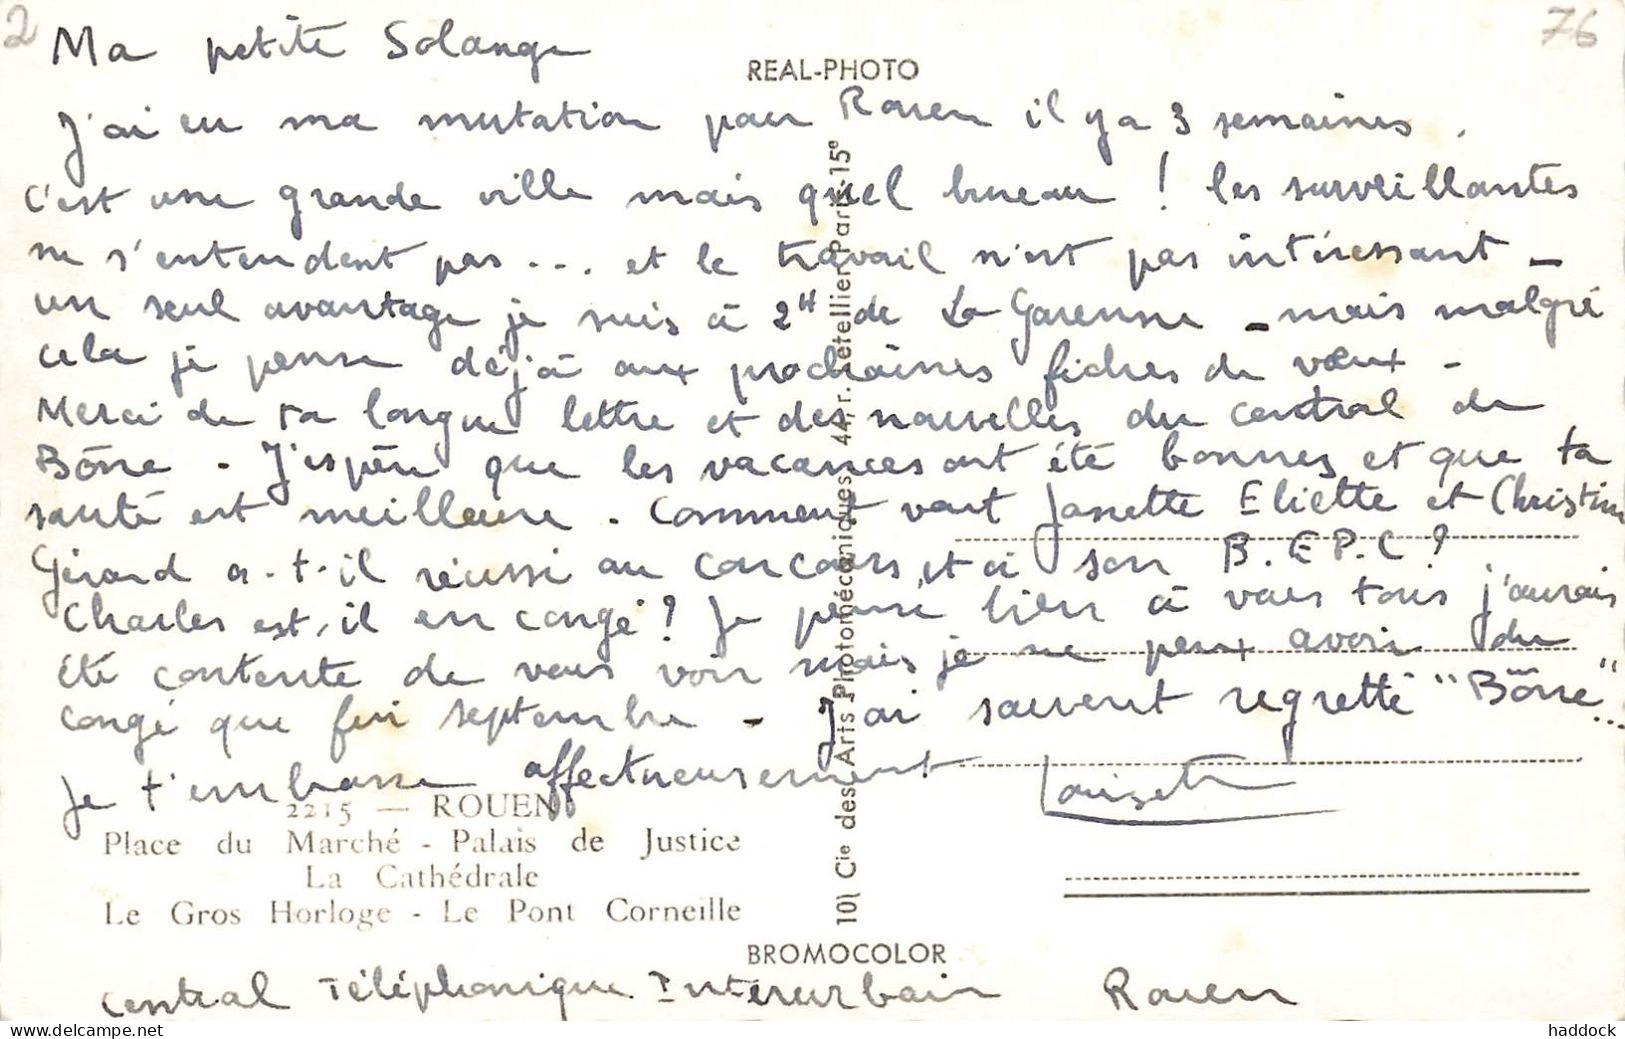 2
76
Ma petite Solange
REAL-PHOTO
J'ai eu ma mutation pour Rouen il y a 3 semaines.
C'est une grande ville mais quel bureau ! les surveillantes
ne s'entendent pas ... et le travail n'est pas intéressant -
un seul avantage je suis à 2H de La Garenne - mais malgré
cela je pense déjà aux prochaines fiches de vœux -
Merci de ta longue lettre et des nouvelles du central de
Bône - J'espère que les vacances ont été bonnes et que ta
santé est meilleure . Comment vont Jannette Eliette et Christine
Gérard a-t-il réussi au concours, et à son B.E.P.C ?
Charles est-il en congé ? Je pense bien à vous tous j'aurais
été contente de vous voir mais je ne peux avoir du
congé que fin septembre - J'ai souvent regretté "Bône" ...
Je t'embrasse affectueusement Louisette
2215 — ROUEN
Place du Marché - Palais de Justice
La Cathédrale
Le Gros Horloge - Le Pont Corneille
10) Cie des Arts Photomécaniques 44, r. Letellier Paris-15e
BROMOCOLOR
Central Téléphonique Interurbain Rouen
www.delcampe.net
haddock